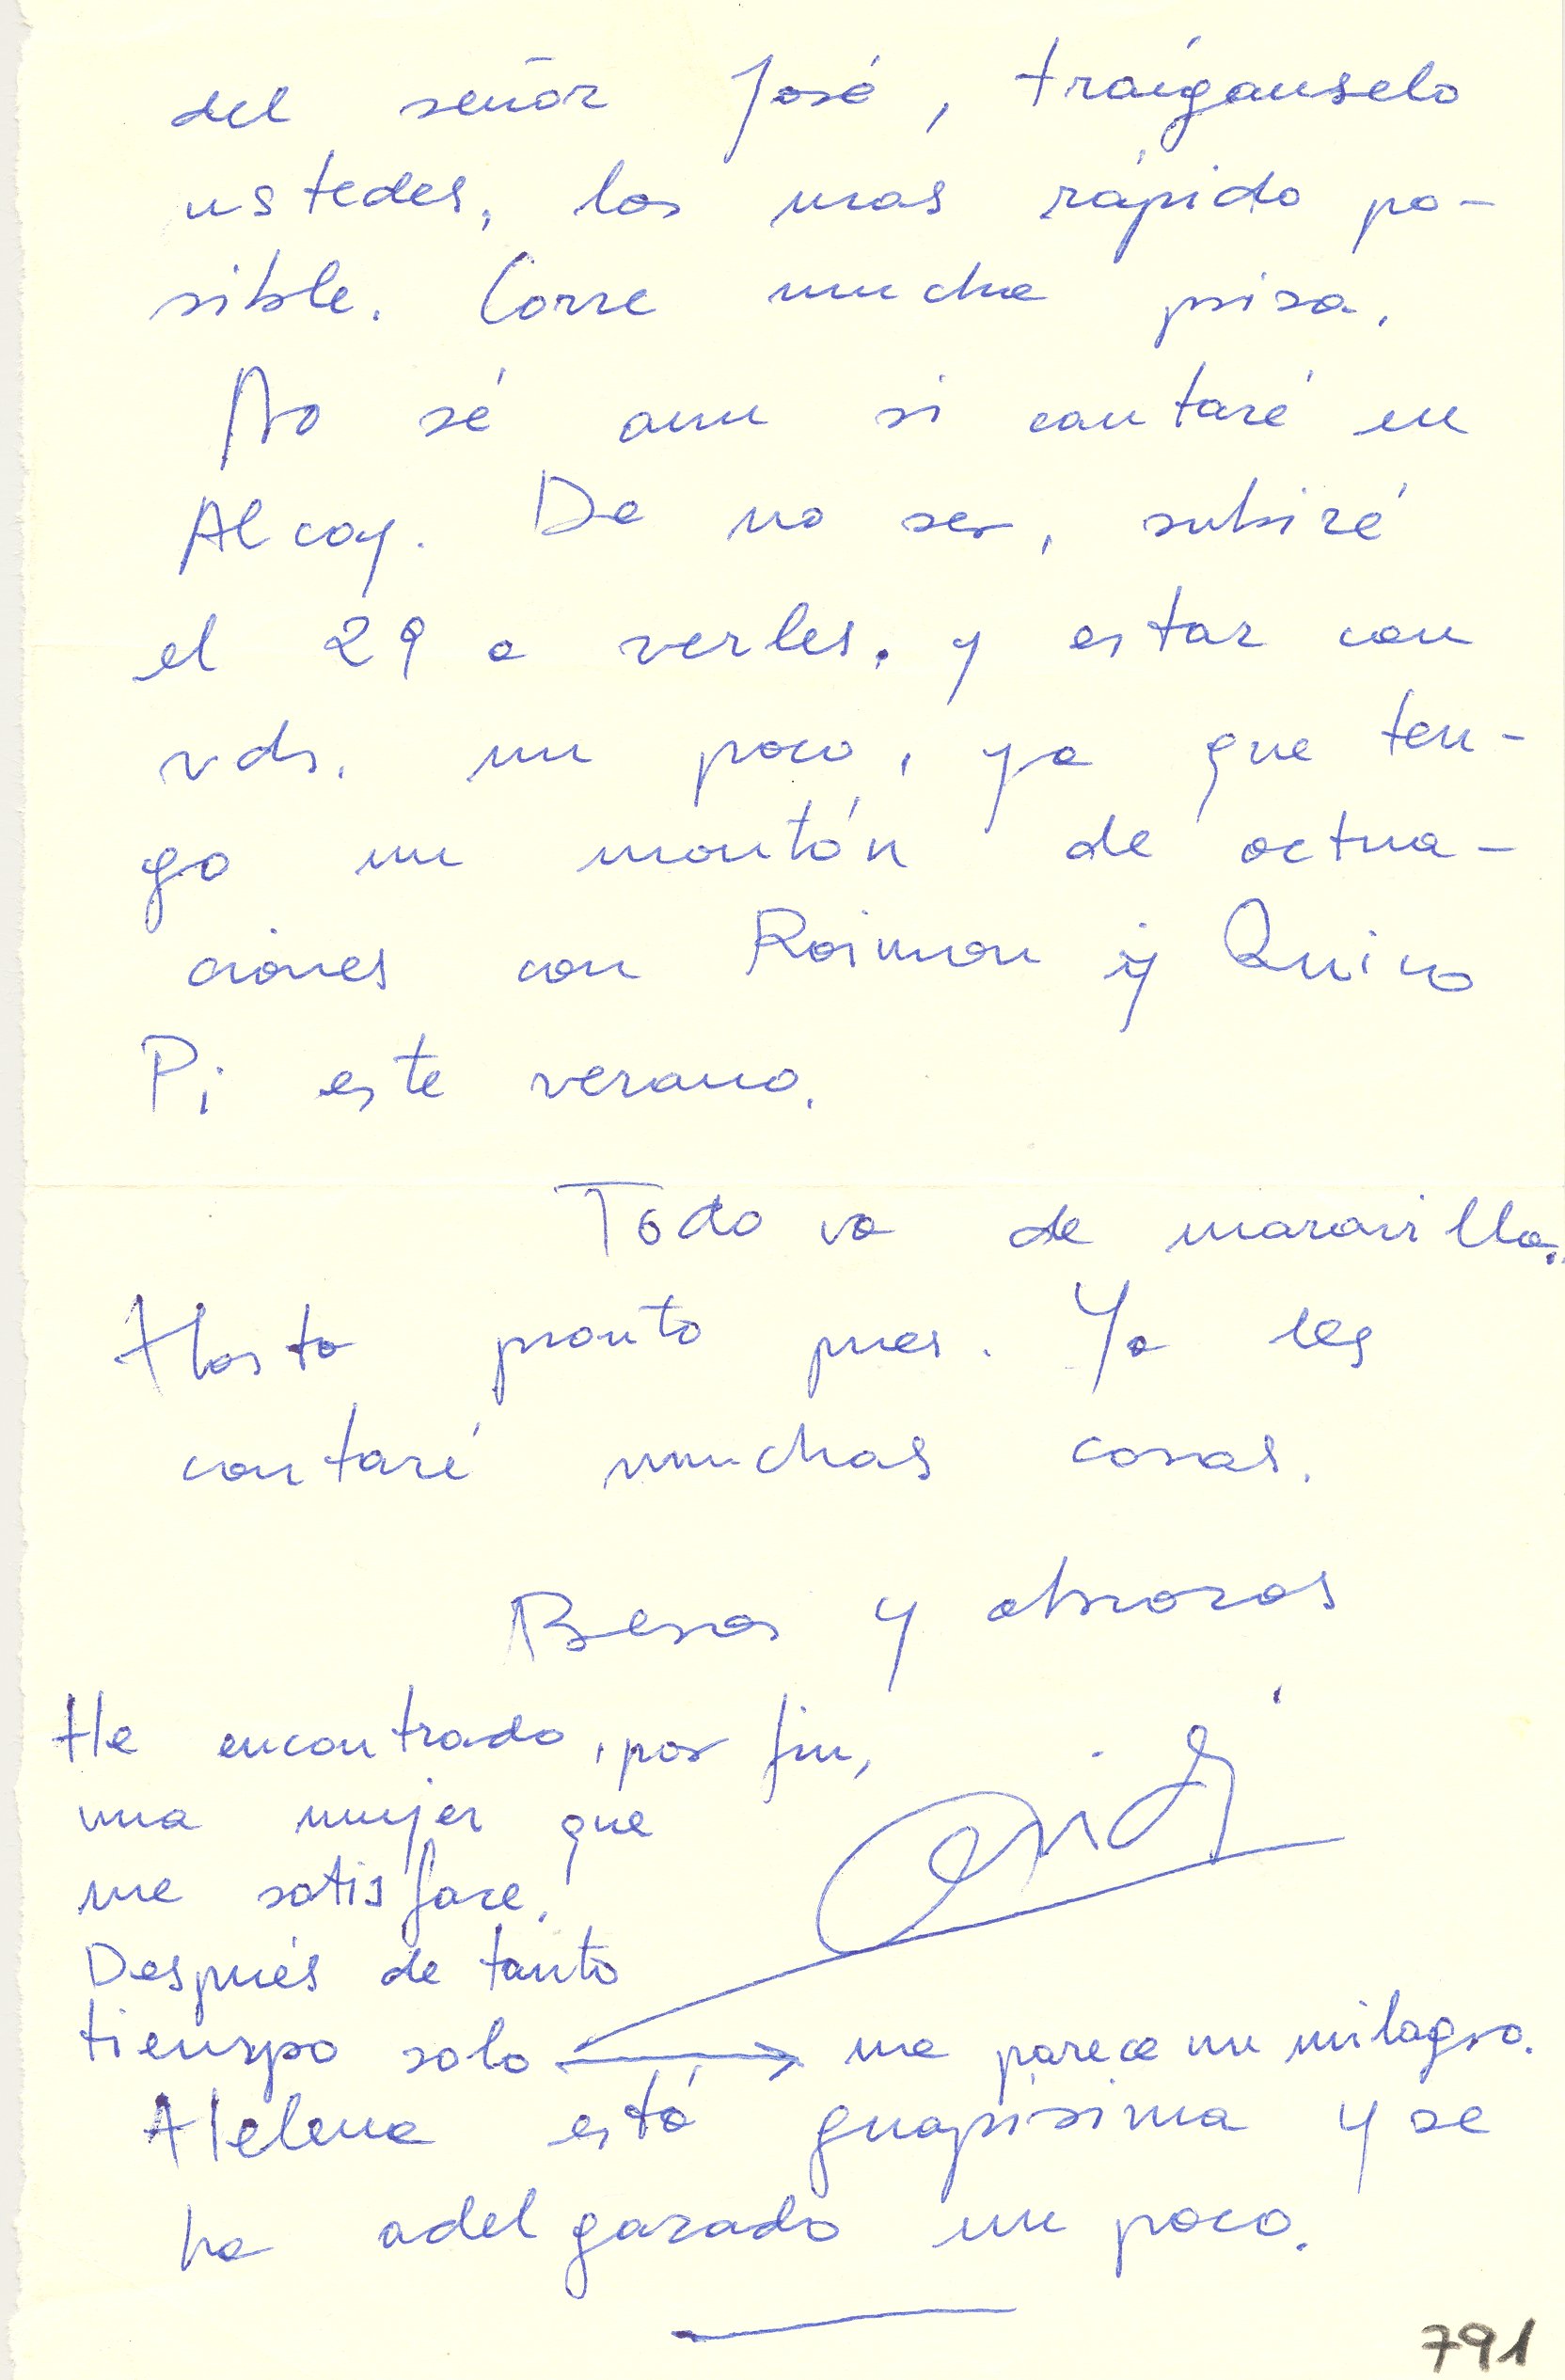 del señor José, traíganselo
ustedes, los mas rápido po-
sible. Corre mucha prisa.
No sé aun si cantaré en
Alcoy. De no ser, subiré
el 29 a verles. y estar con
vds. un poco, ya que ten-
go un montón de actua-
ciones con Raimon y Quico
Pi este verano.
Todo va de maravilla.
Hasta pronto pues. Ya les
contaré muchas cosas.
Besos y abrazos
He encontrado, por fin,
una mujer que
me satisface.
Ovidi
Después de tanto
tiempo solo → me parece un milagro.
Helena está guapísima y se
ha adelgazado un poco.
791